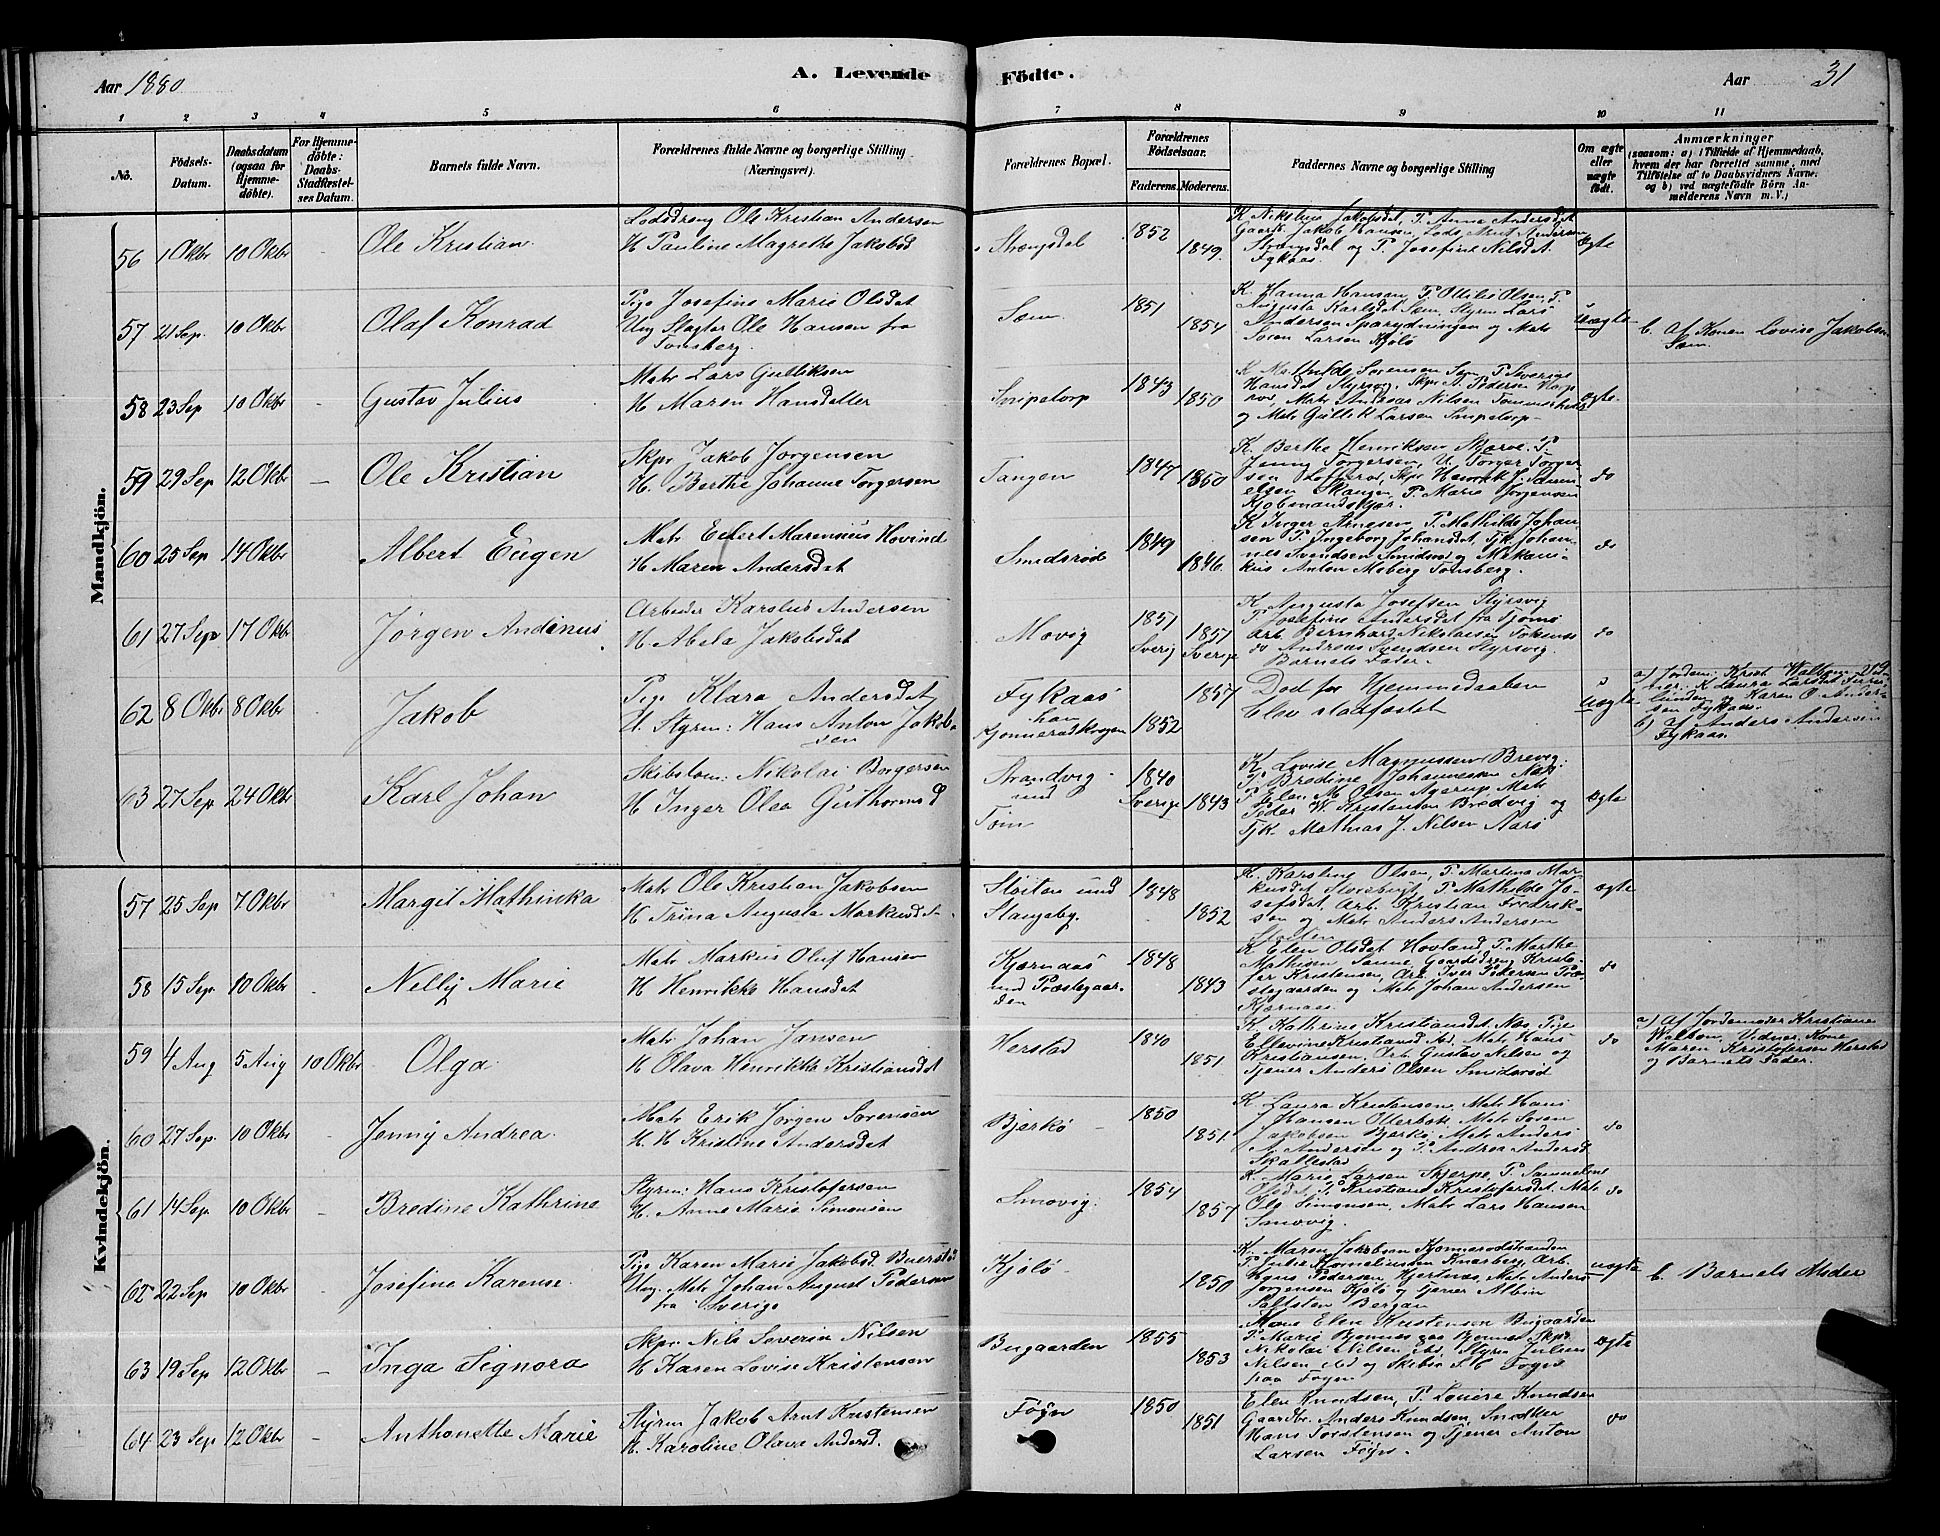 Aar 1880
A. Levende Födte.
Aar
31
1 2 3 4 5 6 7 8 9 10 11
No.
Födsels-Datum.
Daabsdatum (ogsaa for Hjemmedöbte).
For Hjemmedöbte: Daabs-Stadfæstelses Datum.
Barnets fulde Navn.
Forældrenes fulde Navne og borgerlige Stilling (Næringsvei).
Forældrenes Bopæl.
Forældrenes Födselsaar.
Faderens. Moderens.
Faddernes Navne og borgerlige Stilling
Om ægte eller uægte födt.
Anmærkninger
(saasom: a) i Tilfælde af Hjemmedaab, hvem der har forrettet samme, med Tilföielse af to Daabsvidners Navne; og b) ved uægtefödte Börn Anmelderens Navn m. V.)
Mandkjön.
56 1 Okbr 10 Okbr - Ole Kristian
Lodsdreng Ole Kristian Andersen
H Pauline Magrethe Jakobsd
Strengsdal 1852 1849.
K Nikoline Jakobsdet, P. Anna Andersdet
Gaarbr. Jakob Hansen, Lods Arnt Andersen
Strengsdal og P. Josefine Nilsdet
Fykaas.
ægte
57 21 Sep. 10 Okbr - Olaf Konrad
Pige Josefine Marie Olsdet
Ung Slagter Ole Hansen fra
Tønsberg.
Sæm. 1851 1854
K. Hanna Hansen, P. Ottilie Olsen, P.
Augusta Karlsdet Sem, Styrm Lars
Andersen og Matr
Søren Larsen Kjøle
uægte
b. af Konen Lovise Jakobsen
Sæm.
58 23 Sep 10 Okbr - Gustav Julius
Matr Lars Gulliksen
H Maren Hansdatter
Snipetorp 1843 1850
K Mathilde Sørensen Sem, P Severine
Hansdet Styrsvig, Skpr A. Pedersen
Matr Andreas Nilsen
og Matr Gullik Larsen Snipetorp
ægte
59 29 Sep 12 Okbr - Ole Kristian
Skpr Jakob Jørgensen
H. Berthe Johanne Torgersen
Tangen 1847 1850
K. Berthe Henriksen P.
Jenny Torgersen, U. Torger Torger
sen Skpr Henrik J. Hansen
P. Marie Jørgensen
do
60 25 Sep 14 Okbr - Albert Eugen
Matr Edvert Marensius Hovind
H Maren Andersdet
Smidsrød 1849 1846.
K Inger Arnesen, P. Mathilde Johan
sen P. Ingeborg Johansdet, Tjk. Johan
nes Svendsen Smidsrød og Mekani
kus Anton Moberg Tønsberg.
do
61 27 Sep 17 Okbr Jørgen Andinus
Arbeider Karslus Andersen
H. Abela Jakobsdet
Movig 1851 Sverig 1857 Sverige
K. Augusta Josefsen Styrsvig
P. Josefine Andersdet fra Tjømø
Arb. Bernhard Nikolaisen
do Andreas Svendsen Styrsvig.
Barnets Fader.
do
62 8 Okbr 8 Okbr Jakob
Pige Klara Andersdet,
U. Styrm: Hans Anton Jakob
sen
Fykaas
han
1852 1857
Død før Hjemmedaaben
blev stadfæstet
uægte
a) Jordem. Krist. Walbom
K Laura Larsdet
og Karen O. Ander
sen Fykaas.
b) af Anders Andersen
Fykaas.
63 27 Sep 24 Okbr Karl Johan
Skibstøm: Nikolai Borgersen
H Inger Olea Guthormsd
Strandvig
und
Tøm
1840 Sverige 1843
K Lovise Magnussen Brevig.
P. Bredine Johannesen
P Elen M Olsen Agerup Matr
Peder W. Kristenson Brødvig og
Tjk. Mathias J. Nilsen Aarø
ægte
Kvindekjön.
57 25 Sep 7 Okbr Margit Mathinka
Matr Ole Kristian Jakobsen
H Trina Augusta Markusdet
Støiten und
Stangeby. 1848 1852
K. Karoline Olsen, P. Martina Mar
kusdet P Mathilde Jo
sefsdet, Arb. Kristian Fredrik
sen og Matr Anders Andersen
Støiten
ægte
58 15 Sep 10 Okbr - Nelly Marie
Matr Markus Oluf Hansen
H Henrikke Hansdet
Kjærnaas
und Præstegaar
den 1848 1843
K Elen Olsdet Hovland, P. Marthe
Mathisen Sanne, Gaardsdreng Kristo
fer Kristensen, Arb. Iver Pedersen Præ
stegaarden og Matr Johan Andersen
Kjærnaas
do
59 4 Aug 5 Aug 10 Okbr Olga
Matr Johan Jansen
H Olava Henrikka Kristiansdet
Herstad 1840 1851.
K. Kathrine Kristiansdet Næs, Pige
Ellevine Kristiansd ibd, Matr Hans
Kristiansen, Arb Gustav Nilsen og
Tjener Anders Olsen Smidsrød
do
a) af Jordemoder Kristiane
Walbom, Vidner Kone
Maren Kristofersen Herstad
og Barnets Fader.
60 27 Sep. 10 Okbr - Jenny Andrea
Matr Erik Jørgen Sørensen
H. H Kristine Andersdet
Bjerkø 1850 1851.
K Laura Kristensen, Matr Hans
Johansen Matr Søren
Jakobsen Bjerkø, Matr Anders
A. Andersen og P. Andrea Andersd
Skallestad
do
61 14 Sep 10 Okbr - Bredine Kathrine
Styrm: Hans Kristofersen
H. Anne Marie Simonsen
Smovig. 1854 1857
K. Marie Larsen Skjerpe P. Sammeline
Olsdet, P. Kristiane Kristofersdet, Matr
Ole Simonsen, Matr Lars Hansen
Smovig.
do
62 22 Sep 10 Okbr Josefine Karense
Pige Karen Marie Jakobsd Buerstad
Ung. Matr Johan August Pedersen
fra Sverige
Kjøle 1850
K. Maren Jakobsen
P. Julie Korneliusen Knarberg, Arb.
Pedersen, Hjertnæs, Matr Anders
Jørgensen Kjøle og Tjener Albin
Bergan
uægte
b. Barnets Moder
63 19 Sep 12 Okbr - Inga Signora
Skpr Nils Severin Nilsen
H Karen Lovise Kristensen
Bugaarden 1855 1853
Kone Elen Kristensen Bugaarden
P. Marie Bonnes Skpr
Nikolai Nilsen ibd, Styrm Julius
Nilsen ibd og Skibsr
paa Føyn
ægte
64 23 Sep 12 Okbr - Anthonette Marie
Styrm Jakob Arnt Kristensen
H. Karoline Olava Andersd.
Føyn 1850 1851
Elen Knudsen, P. Lovise Knudsen
Gaardbr. Anders Knudsen, Snedker
Hans Torstensen og Tjener Anton
Larsen Føyn.
do